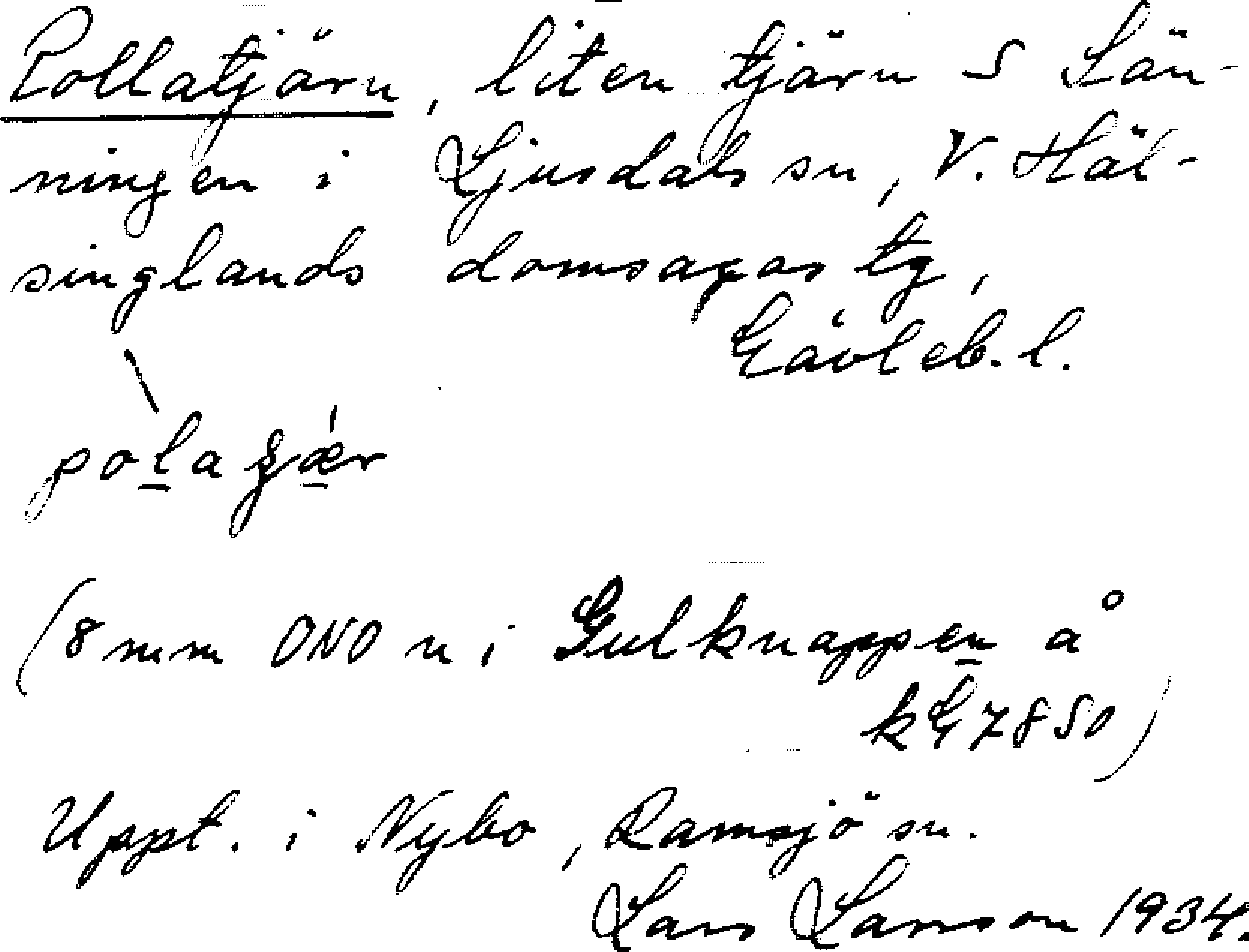 Pollatjärn, liten tjärn S Län-
ningen i Ljusdals sn, V. Häl-
singlands domsagas tg,
Gävleb. l.
(8 mm ONO n i Gulknappen å
kG 7850)
Uppt. i Nybo, Ramsjö sn.
Lars Larsson 1934.